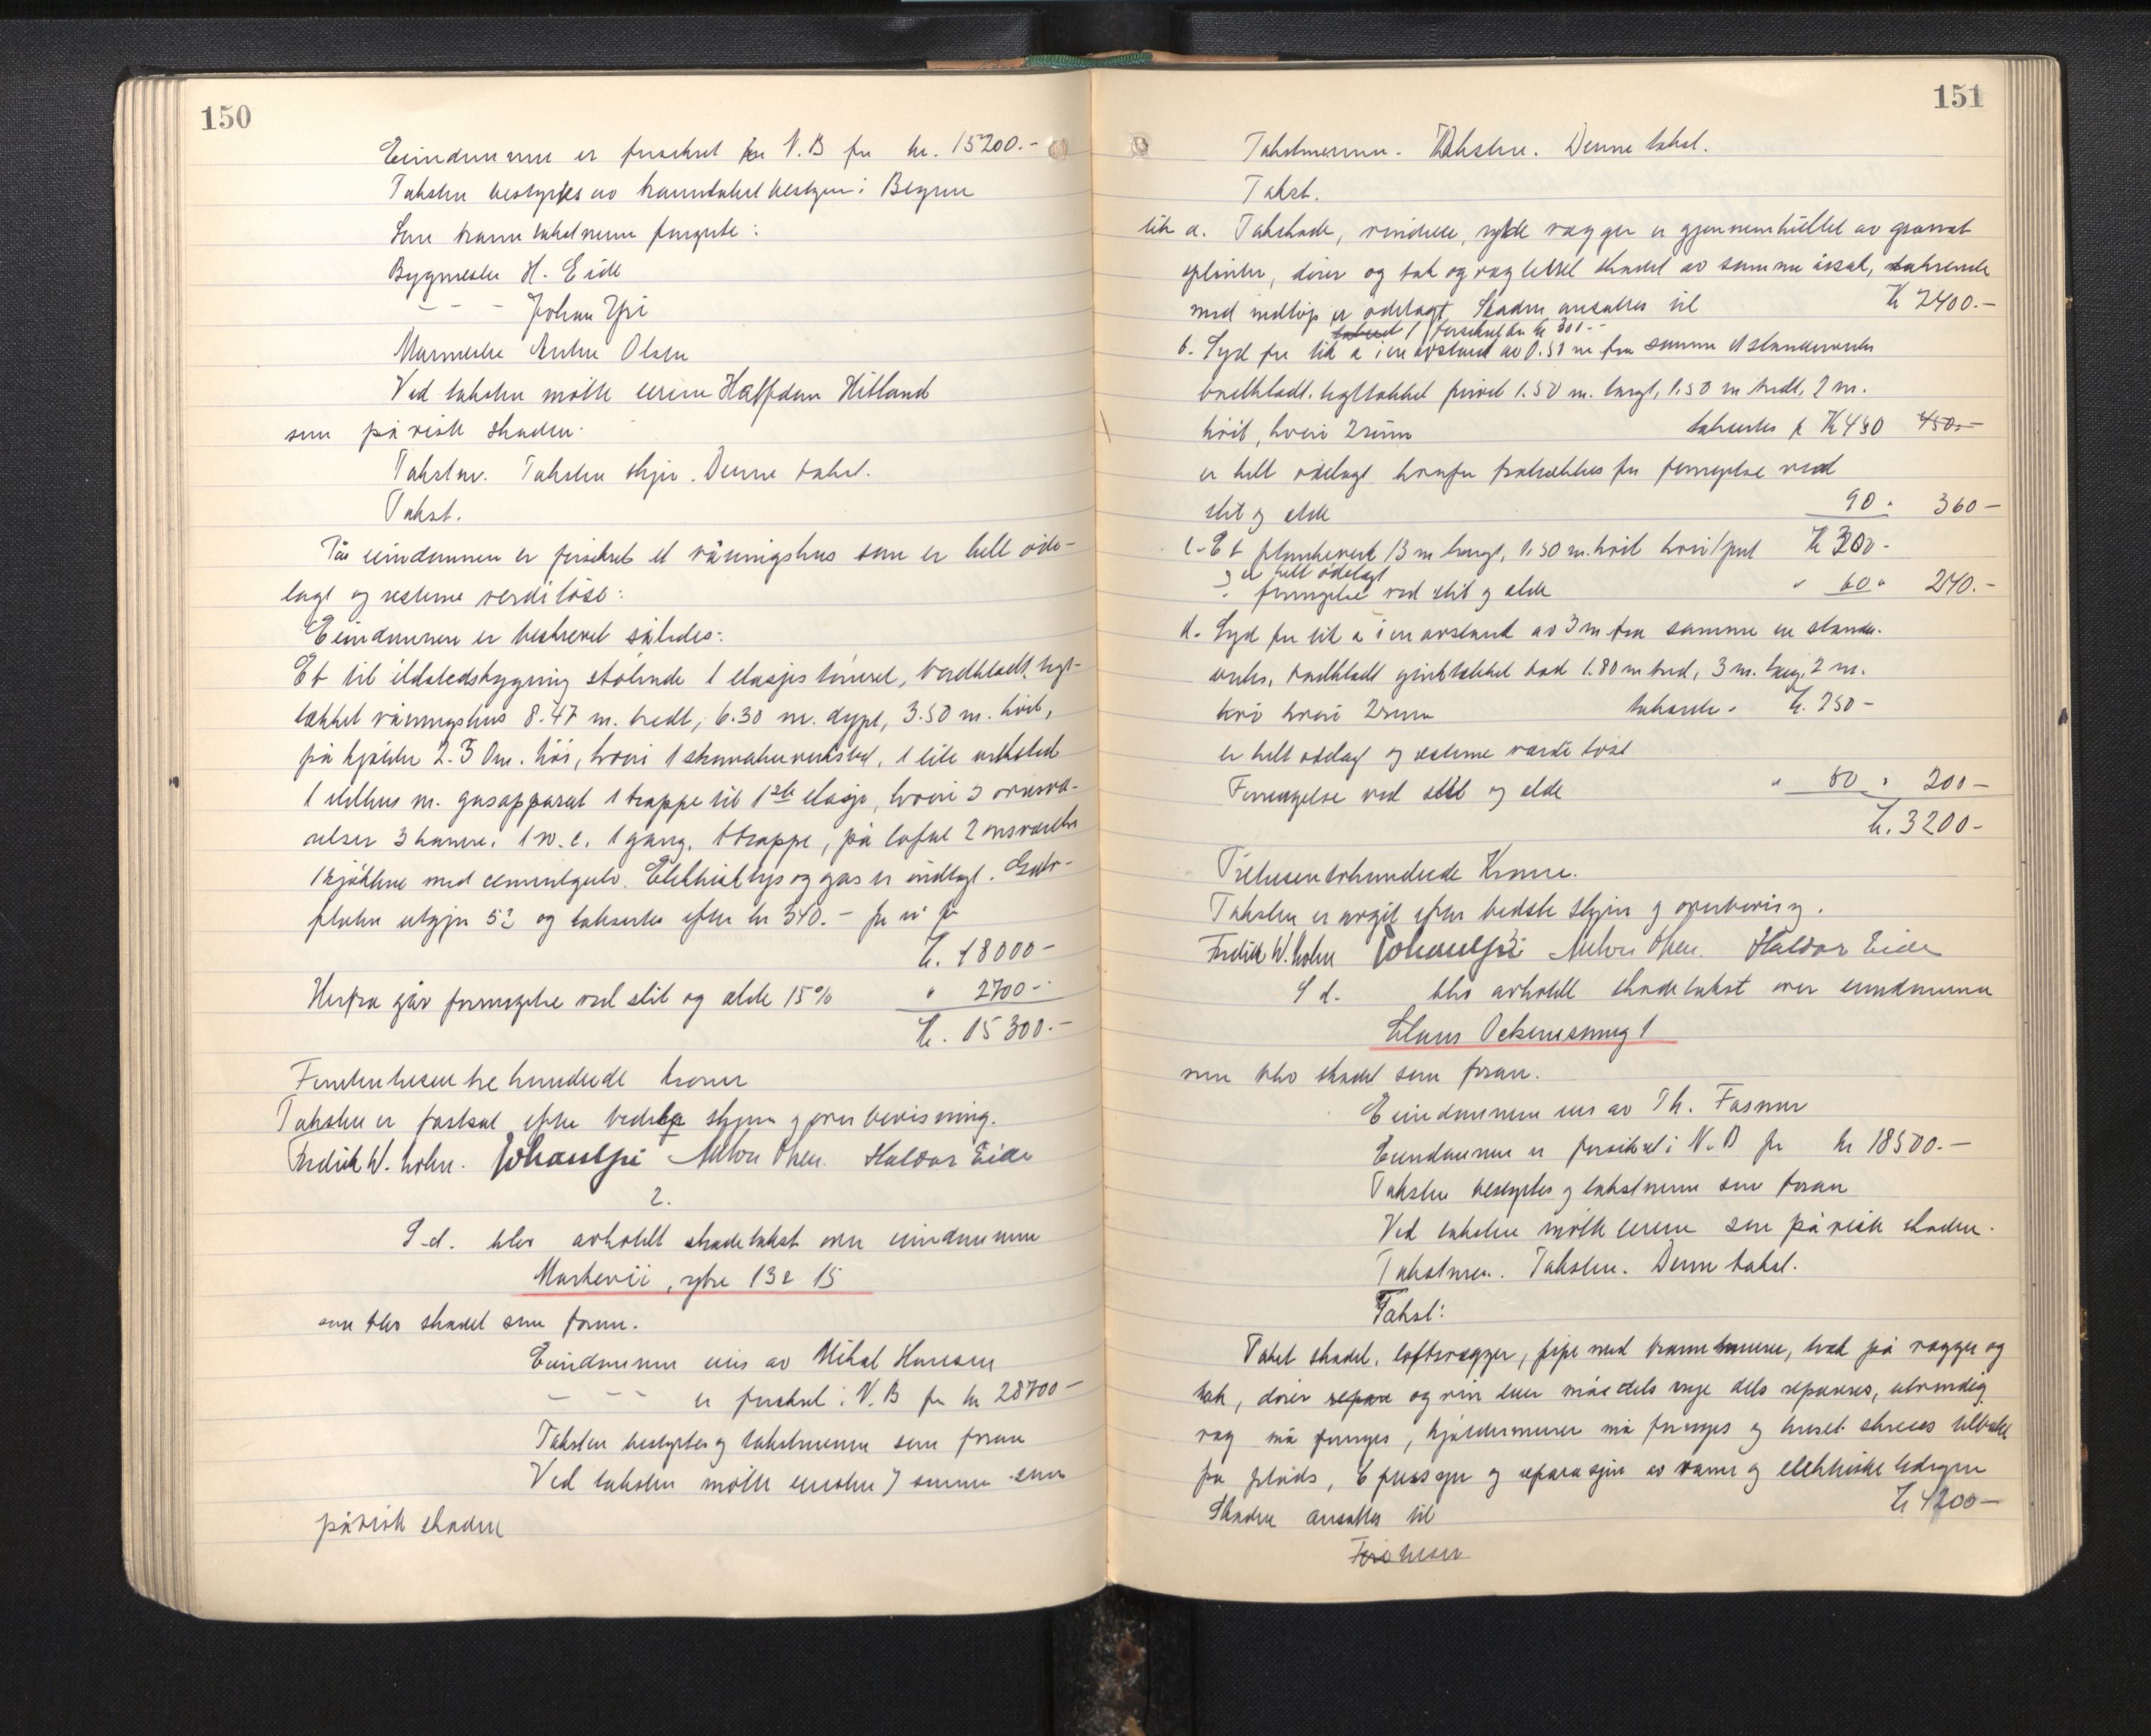 150
Eiendommen er forsikret hos N.B for kr. 15200.-
Taksten bestyrtes av branntakstbestyrer i Bergen
Som branntakstmenn fungerte:
Bygmester H. Eide
- - - Johan Ypi
Murmester Anton Olsen
Ved taksten møtte eieren Halfdan Hitland
som påviste skaden.
Takstm. Taksten skjer. Denne takst.
Takst.
På eiendommen er forsikret et våningshus som er helt øde-
lagt og resterne verdiløse:
Eiendommen er beskrevet således:
Et til ildstedsbygning stølende 1 etasjes tømret, bordkledt, tegl-
tækket våningshus 8.47 m. bredt, 6.30 m. dypt, 3.50 m. høit,
på kjelder 2.30 m. høi, hvori 1 verksted, 1 lite verksted
1 m. gasapparat 1 trappe til 1ste etasje, hvori 3
3 kamre. 1 w.c. 1 gang. 1 trappe, på loftet 2
1 kjøkken med cementgulv. Elektrisk lys og gas er indlagt.
flaten utgjør 52 og takseres efter kr 340.- pr m² for
kr. 18000-
Herfra går forringelse ved slit og elde 15% " 2700-
kr. 15300.-
Femtentusentrehundrede kroner
Taksten er fastsat efter bedste skjøn og overbevisning.
Fredrik W. Johan Ypi Anton Olsen. Haldor Eide
2.
S.d. blev avholdt skadetakst over eiendommen
Markevei, ytre 13 & 15
som blev skadet som foran.
Eiendommen eies av Mikal Hansen
- - - er forsikret i N.B for kr 28700-
Taksten bestyrtes og takstmennene som foran
Ved taksten møtte som
påviste skaden
151
Takstmennene. Taksten. Denne takst.
Takst.
litr a. Takskade, vinduer, ytre vægger er gjennemhullet av granat
splinter, dører og tak og væg lettere skadet av samme årsak,
med indtop er ødelagt. Skaden ansettes til kr 2400.-
1 forsikret for kr 300.-
b. Syd for litr a i en avstand av 0.50 m fra samme et standerverks
bordkledt, tegltækket privet 1.50 m. langt, 1.50 m bredt, 2 m.
høit, hvori 2 rum takseret for Kr 450 450.-
er helt ødelagt herfra fratrækkes for forringelse ved
slit og elde 90 " 360-
c. Et plankeverk 13 m langt, 1.50 m. høit hvori 1 port kr 300-
er helt ødelagt
- forringelse ved slit og elde " 60 " 240.-
d. Syd for litr a i en avstand av 3 m fra samme en stander-
verks, bordkledt tækket bod 1.80 m bred, 3 m. lang, 2 m.
høi hvori 2 rum takseret kr. 250-
er helt ødelagt og resterne værdiløse
Forringelse ved slit og elde " 50 " 200-
kr. 3200-
Tretusentohundrede Kroner.
Taksten er avgit efter bedste skjøn og overbevisning.
Fredrik W. Johan Ypi Anton Olsen. Haldor Eide
S d. blev avholdt skadetakst over eiendommen
Claus Ockensmug 1
som blev skadet som foran.
Eiendommen eies av Th. Fasmer
Eiendommen er forsikret i N.B for kr 18500.-
Taksten bestyrtes og takstmenn som foran
Ved taksten møtte eieren som påviste skaden.
Takstmen. Taksten. Denne takst.
Takst:
Taket skadet, loftsvægger, pipe med brannmurer, på vægger og
tak, dører og vinduer må dels nye dels repareres, utvendig
væg må fornyes, kjeldermurer må fornyes og huset skrues tilbake
på plads, og reparasjon av vann og elektriske ledninger
Skaden ansettes til kr 4200-